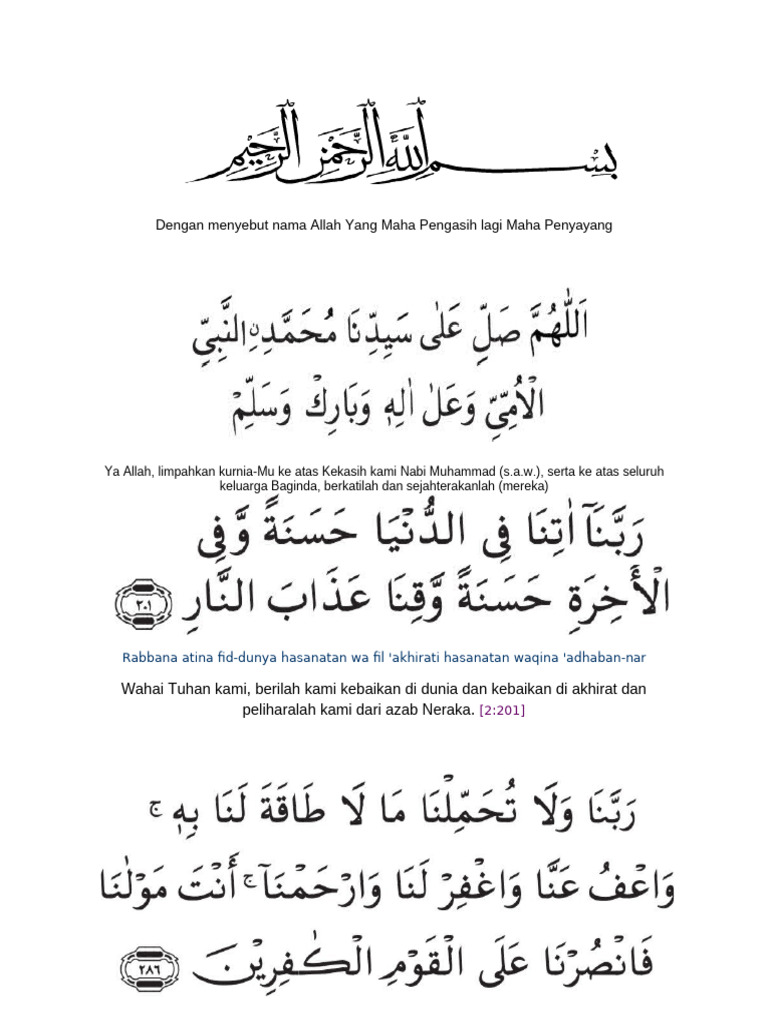 بِسْمِ اللَّهِ الرَّحْمٰنِ الرَّحِيمِ
Dengan menyebut nama Allah Yang Maha Pengasih lagi Maha Penyayang
اَللّٰهُمَّ صَلِّ عَلٰى سَيِّدِنَا مُحَمَّدِ نِ النَّبِيِّ
الْاُمِّيِّ وَعَلٰ اٰلِهٖ وَبَارِكْ وَسَلِّمْ
Ya Allah, limpahkan kurnia-Mu ke atas Kekasih kami Nabi Muhammad (s.a.w.), serta ke atas seluruh
keluarga Baginda, berkatilah dan sejahterakanlah (mereka)
رَبَّنَآ اٰتِنَا فِى الدُّنْيَا حَسَنَةً وَّفِى
الْأَخِرَةِ حَسَنَةً وَّقِنَا عَذَابَ النَّارِ ٢٠١
Rabbana atina fid-dunya hasanatan wa fil 'akhirati hasanatan waqina 'adhaban-nar
Wahai Tuhan kami, berilah kami kebaikan di dunia dan kebaikan di akhirat dan
peliharalah kami dari azab Neraka. [2:201]
رَبَّنَا وَلَا تُحَمِّلْنَا مَا لَا طَاقَةَ لَنَا بِهٖ ۚ
وَاعْفُ عَنَّا وَاغْفِرْ لَنَا وَارْحَمْنَآ ۚ أَنْتَ مَوْلٰنَا
فَانْصُرْنَا عَلَى الْقَوْمِ الْكٰفِرِيْنَ ٢٨٦